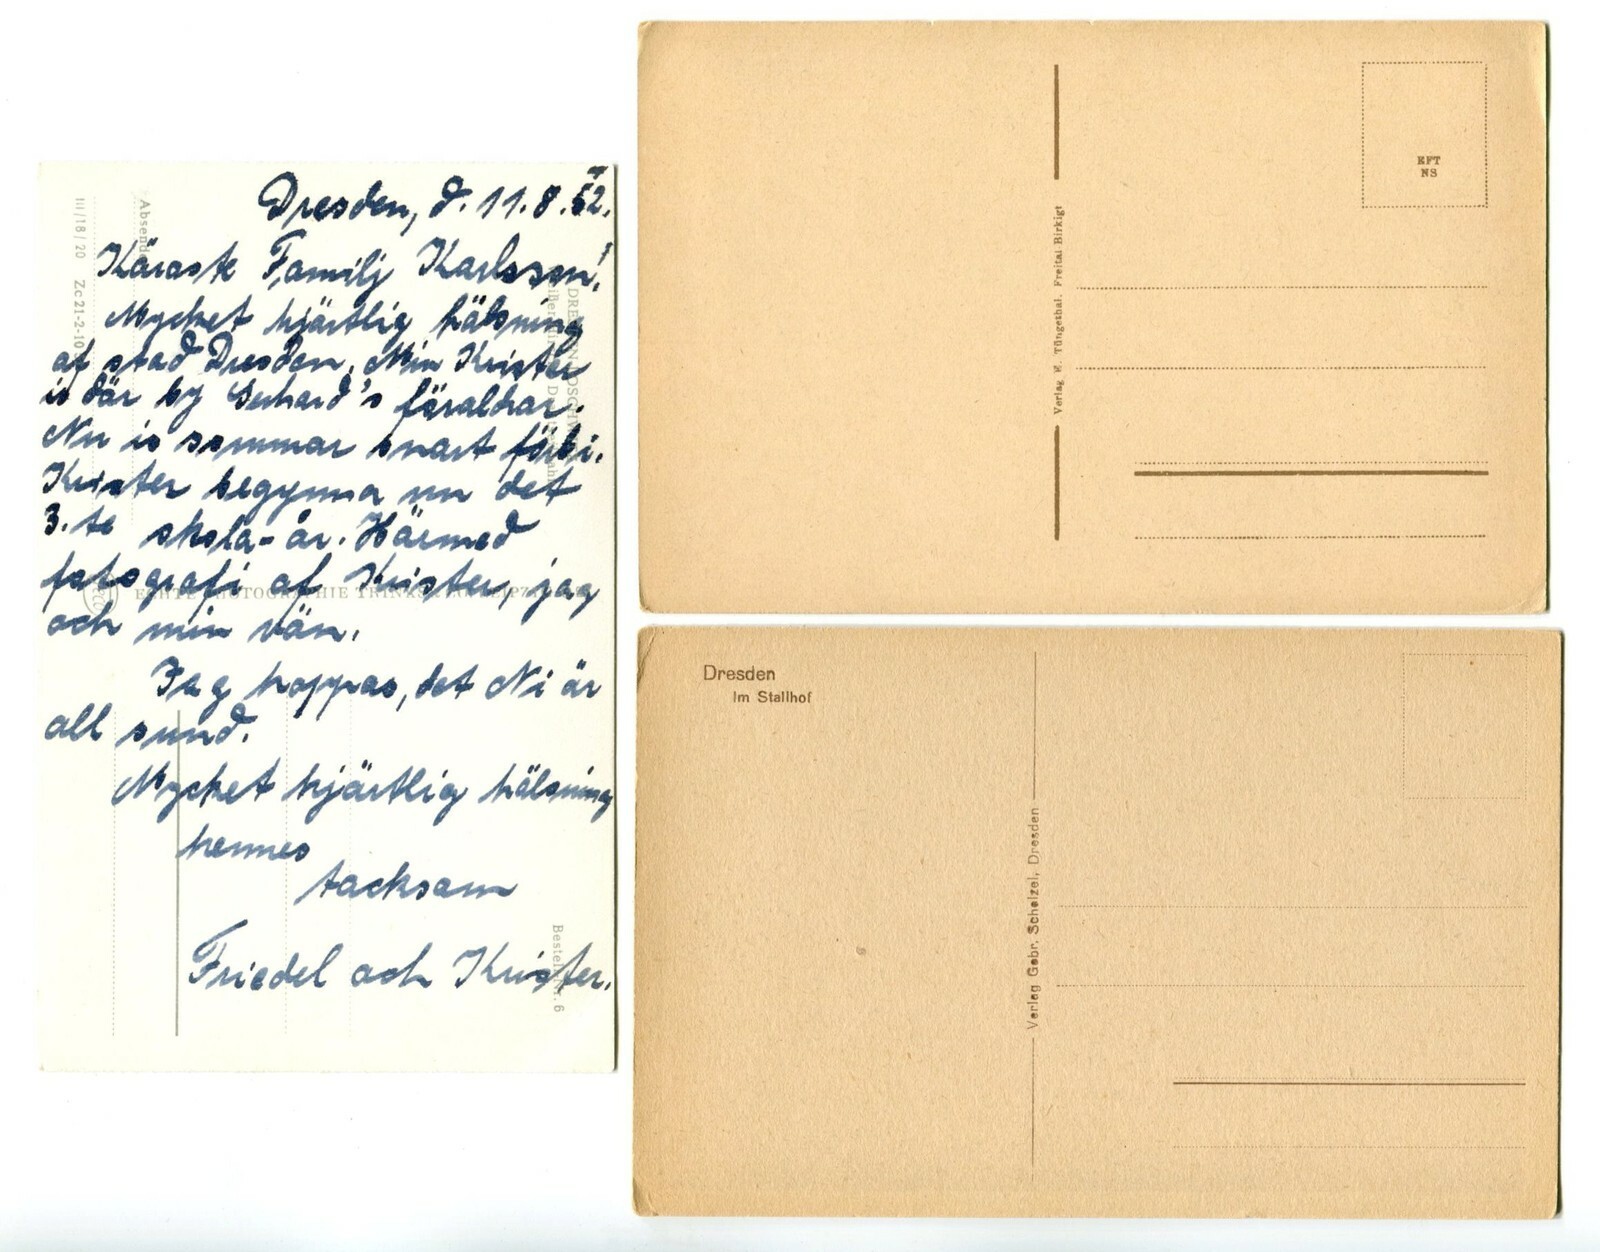 Dresden, d. 11.8.52.
Käraste Familj Karlsson!
Mycket hjärtlig hälsning
af stad Dresden. Min Krister
is där by Gerhard's föraldrar.
Nu is sommar snart förbi.
Krister begynna nu det
3.te skola-år. Härmed
fotografi af Krister, jag
och min vän.
Jag hoppas, det Ni är
all sund.
Mycket hjärtlig hälsning
hennes
tacksam
Friedel och Krister.
III/18/20 Zc 21-2-10
Absend
ECHTE PHOTOGRAPHIE TRINKS
Bestell-Nr. 6
Verlag E. Tüngethal. Freital-Birkigt
EFT
NS
Dresden
Im Stallhof
Verlag Gebr. Schelzel, Dresden